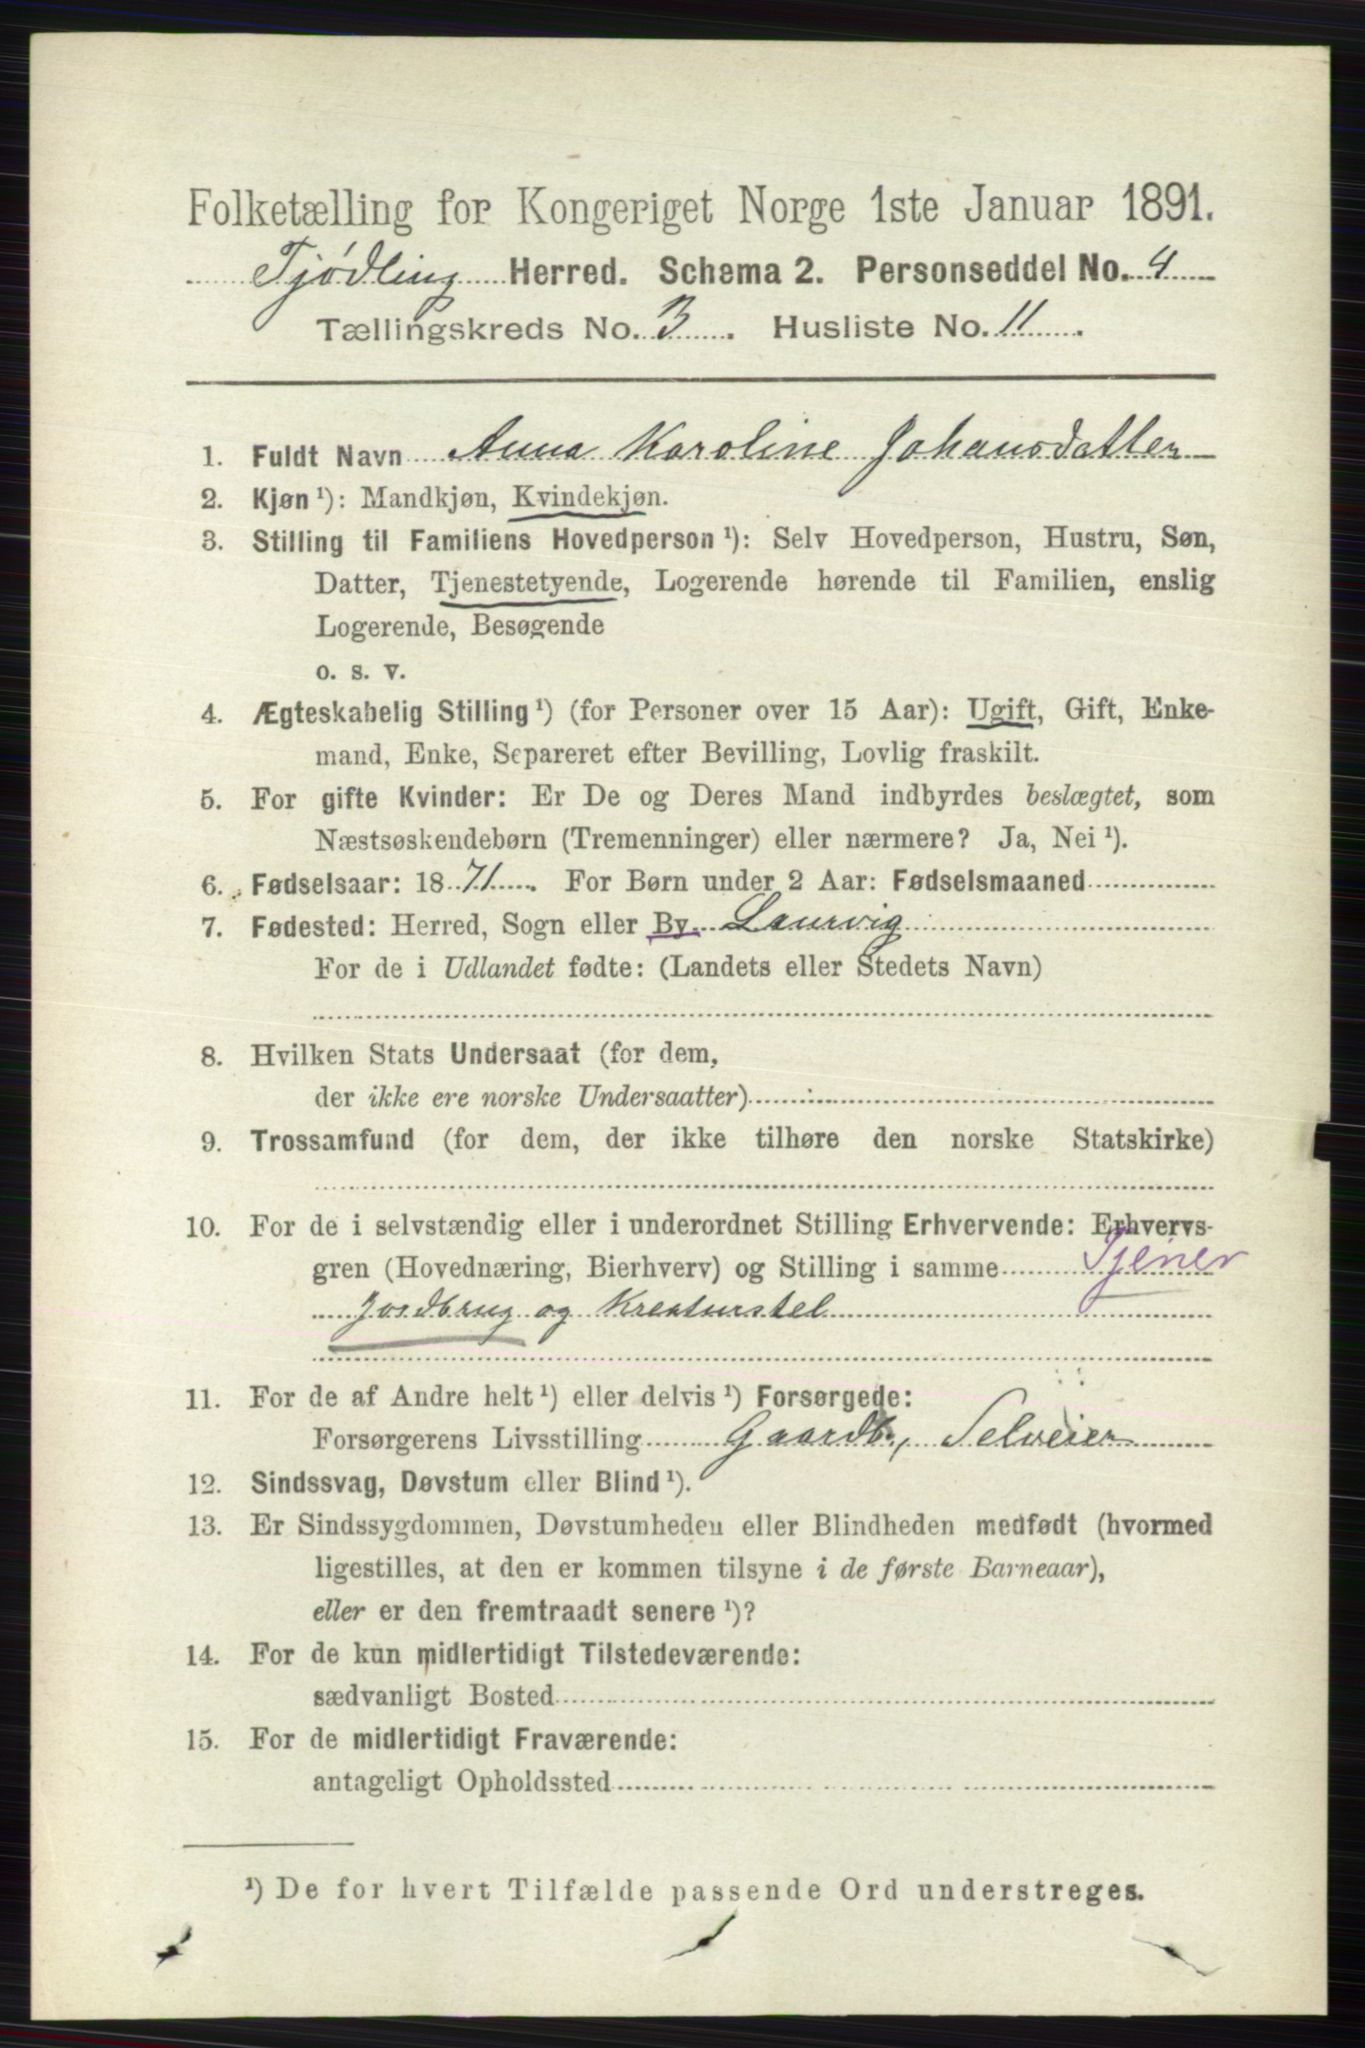 Folketælling for Kongeriget Norge 1ste Januar 1891.
Tjødling Herred. Schema 2. Personseddel No. 4
Tællingskreds No. 3. Husliste No. 11.
1. Fuldt Navn Anna Karoline Johansdatter
2. Kjøn ¹): Mandkjøn, Kvindekjøn.
3. Stilling til Familiens Hovedperson ¹): Selv Hovedperson, Hustru, Søn,
Datter, Tjenestetyende, Logerende hørende til Familien, enslig
Logerende, Besøgende
o. s. v.
4. Ægteskabelig Stilling ¹) (for Personer over 15 Aar): Ugift, Gift, Enke-
mand, Enke, Separeret efter Bevilling, Lovlig fraskilt.
5. For gifte Kvinder: Er De og Deres Mand indbyrdes beslægtet, som
Næstsøskendebørn (Tremenninger) eller nærmere? Ja, Nei ¹).
6. Fødselsaar: 1871. For Børn under 2 Aar: Fødselsmaaned
7. Fødested: Herred, Sogn eller By Laurvig
For de i Udlandet fødte: (Landets eller Stedets Navn)
8. Hvilken Stats Undersaat (for dem,
der ikke ere norske Undersaatter)
9. Trossamfund (for dem, der ikke tilhøre den norske Statskirke)
10. For de i selvstændig eller i underordnet Stilling Erhvervende: Erhvervs-
gren (Hovednæring, Bierhverv) og Stilling i samme Tjener
Jordbrug og Kreaturstel
11. For de af Andre helt ¹) eller delvis ¹) Forsørgede:
Forsørgerens Livsstilling Gaardb., Selveier
12. Sindssvag, Døvstum eller Blind ¹).
13. Er Sindssygdommen, Døvstumheden eller Blindheden medfødt (hvormed
ligestilles, at den er kommen tilsyne i de første Barneaar),
eller er den fremtraadt senere ¹)?
14. For de kun midlertidigt Tilstedeværende:
sædvanligt Bosted
15. For de midlertidigt Fraværende:
antageligt Opholdssted
¹) De for hvert Tilfælde passende Ord understreges.